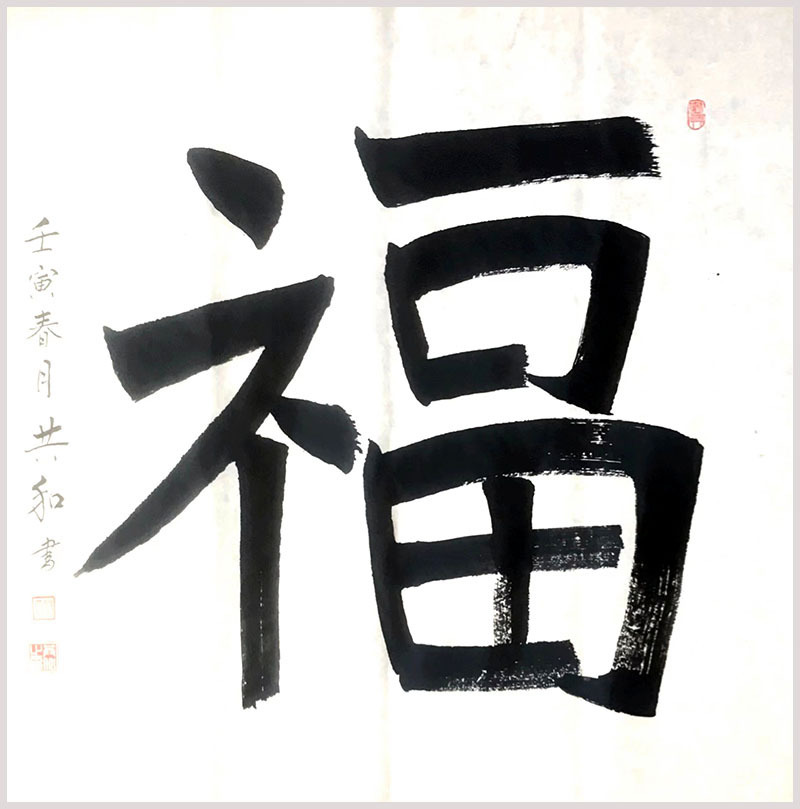 福
壬寅春月共和書